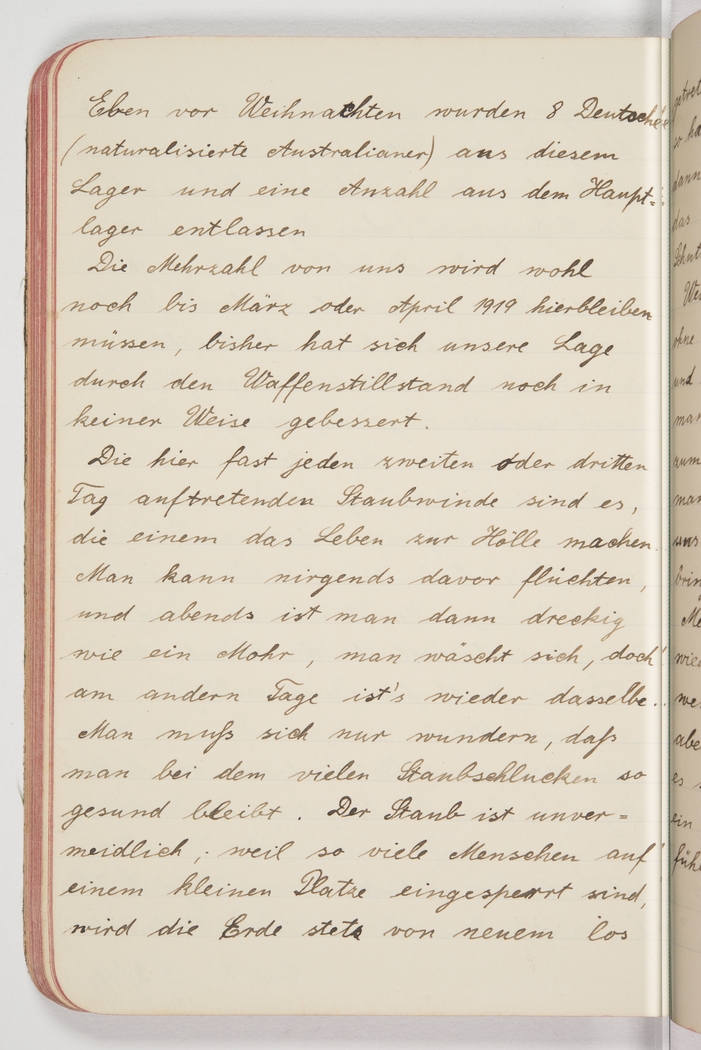 Eben vor Weihnachten wurden 8 Deutsche
(naturalisierte Australianer) aus diesem
Lager und eine Anzahl aus dem Haupt=
lager entlassen
Die Mehrzahl von uns wird wohl
noch bis März oder April 1919 hierbleiben
müssen, bisher hat sich unsere Lage
durch den Waffenstillstand noch in
keiner Weise gebessert.
Die hier fast jeden zweiten oder dritten
Tag auftretenden Staubwinde sind es,
die einem das Leben zur Hölle machen.
Man kann nirgends davor flüchten,
und abends ist man dann dreckig
wie ein Mohr, man wäscht sich, doch
am andern Tage ist's wieder dasselbe.
Man muß sich nur wundern, daß
man bei dem vielen Staubschlucken so
gesund bleibt. Der Staub ist unver=
meidlich; weil so viele Menschen auf
einem kleinen Platze eingesperrt sind,
wird die Erde stets von neuem los